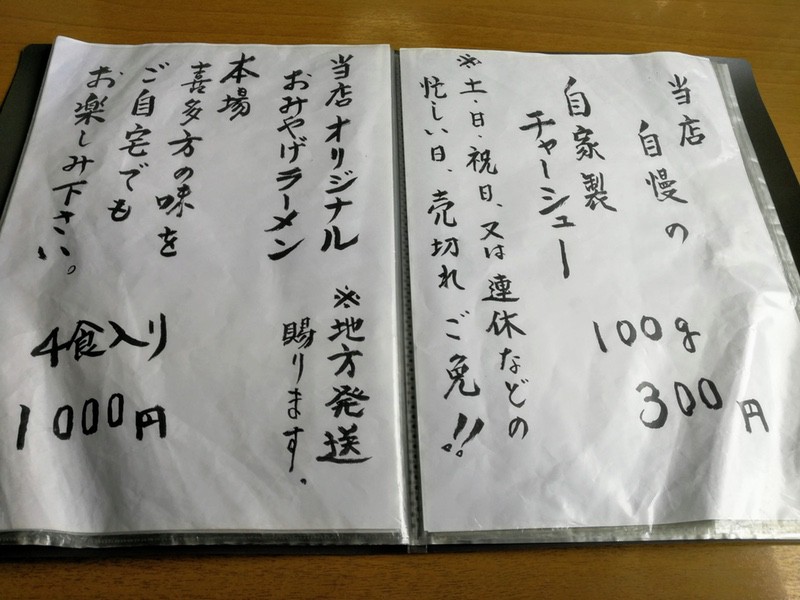 当店
自慢の
自家製
チャーシュー
100g
300円
※土、日、祝日、又は連休などの
忙しい日、売切れご免!!
当店オリジナル
おみやげラーメン
※地方発送
賜ります。
本場
喜多方の味を
ご自宅でも
お楽しみ下さい。
4食入り
1000円